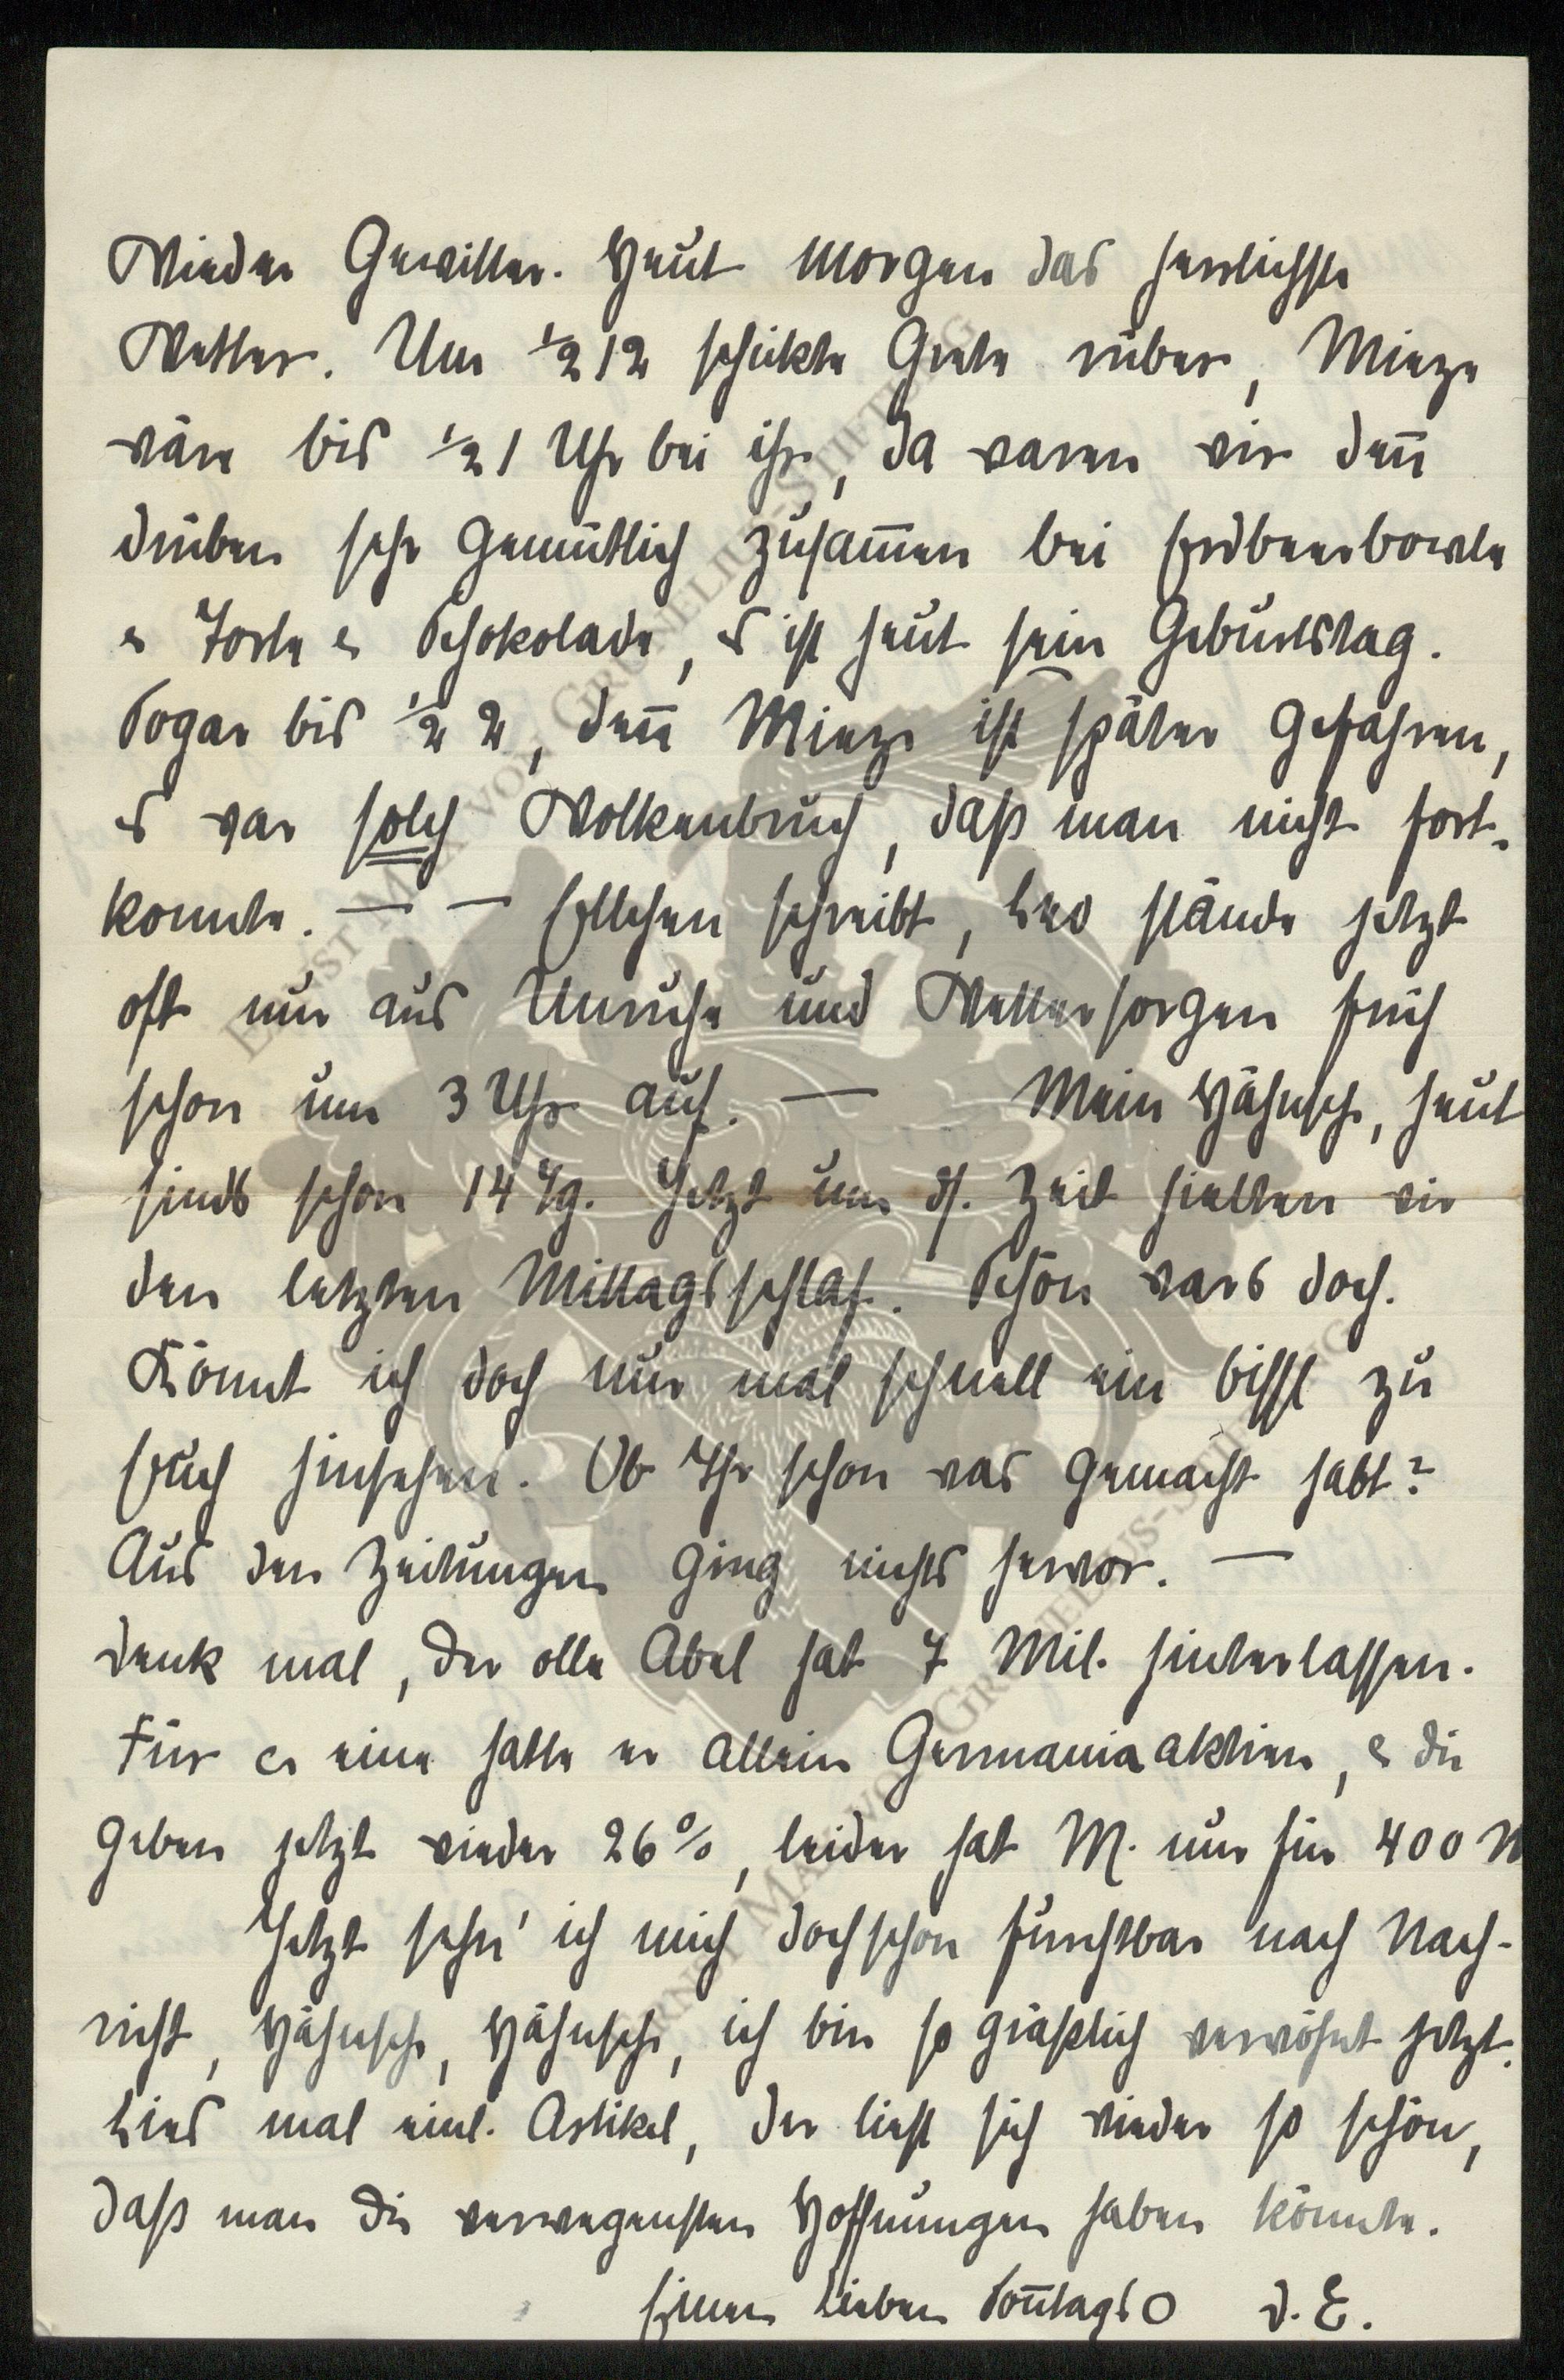 Wieder Gewitter. Heut morgen das herrlichste
Wetter. Um ½12 schickte Grete rüber, Mieze
wäre bis ½1 Uhr bei ihr, da waren wir denn̄
drüben sehr gemütlich zusam̄en bei Erdbeerbowle
u Torte u Schokolade, es ist heut sein Geburtstag.
Sogar bis ½2, den̄ Mieze ist später gefahren,
es war solch Wolkenbruch, daß man nicht fort-
konnte. — — Ellchen schreibt, Leo stände jetzt
oft nur aus Unruhe und Wettersorgen früh
schon um 3 Uhr auf. — Mein Hähnsche, heut
sinds schon 14 Tg. Jetzt um ds. Zeit hielten wir
den letzten Mittagsschlaf. Schön wars doch.
Könnt ich doch nur mal schnell ein bissl zu
Euch hinsehen. Ob Ihr schon was gemacht habt?
Aus den Zeitungen ging nichts hervor. —
Denk mal, der olle Abel hat 7 Mil. hinterlassen.
Für eine hatte er allein Germaniaaktien, u die
geben jetzt wieder 26%, leider hat M. nur für 400 M
Jetzt sehn' ich mich doch schon furchtbar nach Nach-
richt, Hähnsche, Hähnsche, ich bin so gräßlich verwöhnt jetzt.
Lies mal einl. Artikel, der liest sich wieder so schön,
daß man die verwegensten Hoffnungen haben könnte.
Einen lieben Son̄tags O d. E.